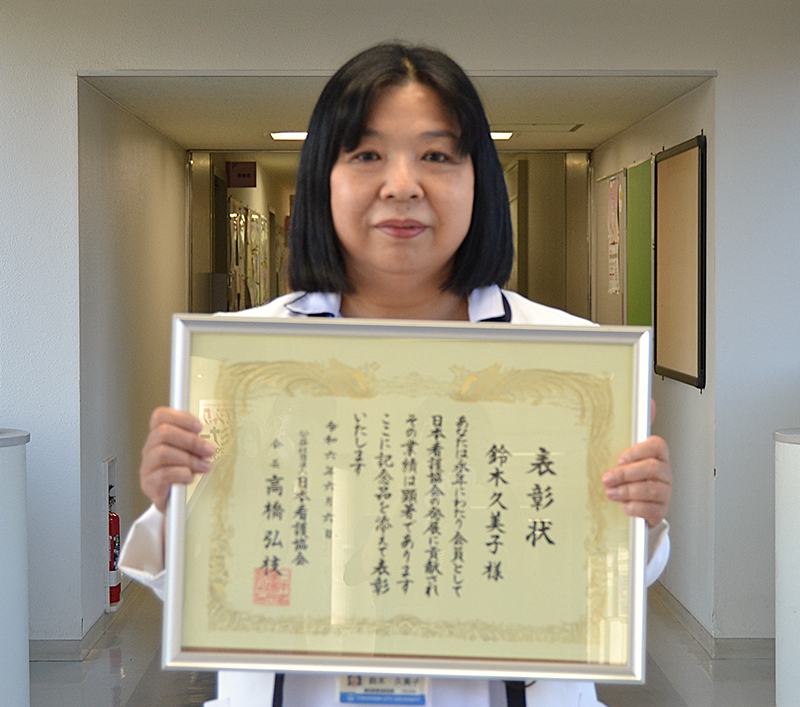 表彰状
鈴木久美子様
あなたは永年にわたり会員として
日本看護協会の発展に貢献され
その業績は顕著であります
ここに記念品を添えて表彰
いたします
令和六年六月六日
公益社団法人日本看護協会
会長 高橋弘枝
鈴木 久美子